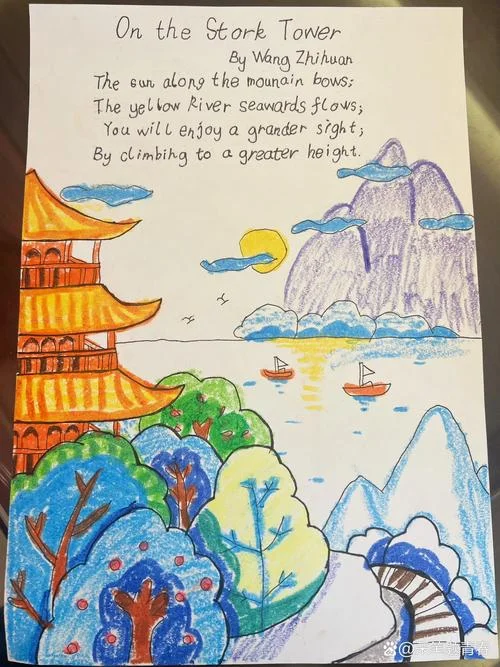 On the Stork Tower
By Wang Zhihuan
The sun along the mounain bows;
The yellow River seawards flows;
You will enjoy a grander sight;
By climbing to a greater height.